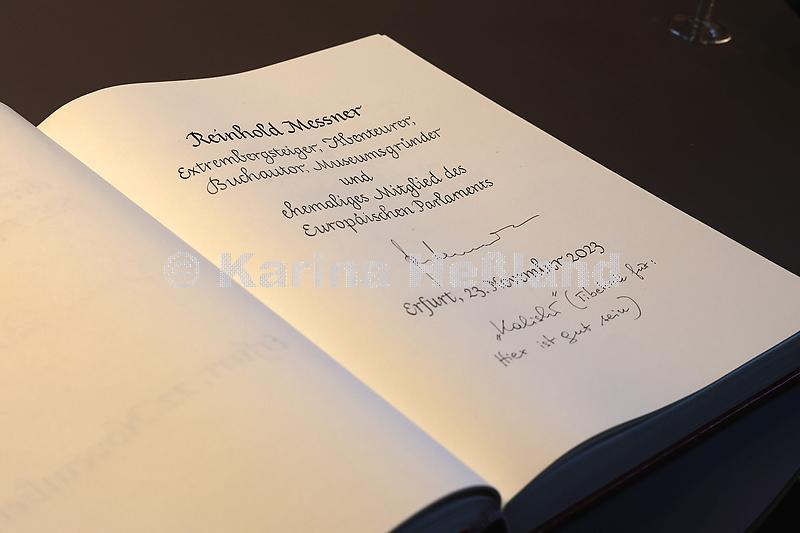 Reinhold Messner
Extrembergsteiger, Abenteurer,
Buchautor, Museumsgründer
und
ehemaliges Mitglied des
Europäischen Parlaments
© Karina Heßland
Erfurt, 23. November 2023
„Kalishi" (Tibetisch für:
Hier ist gut sein)